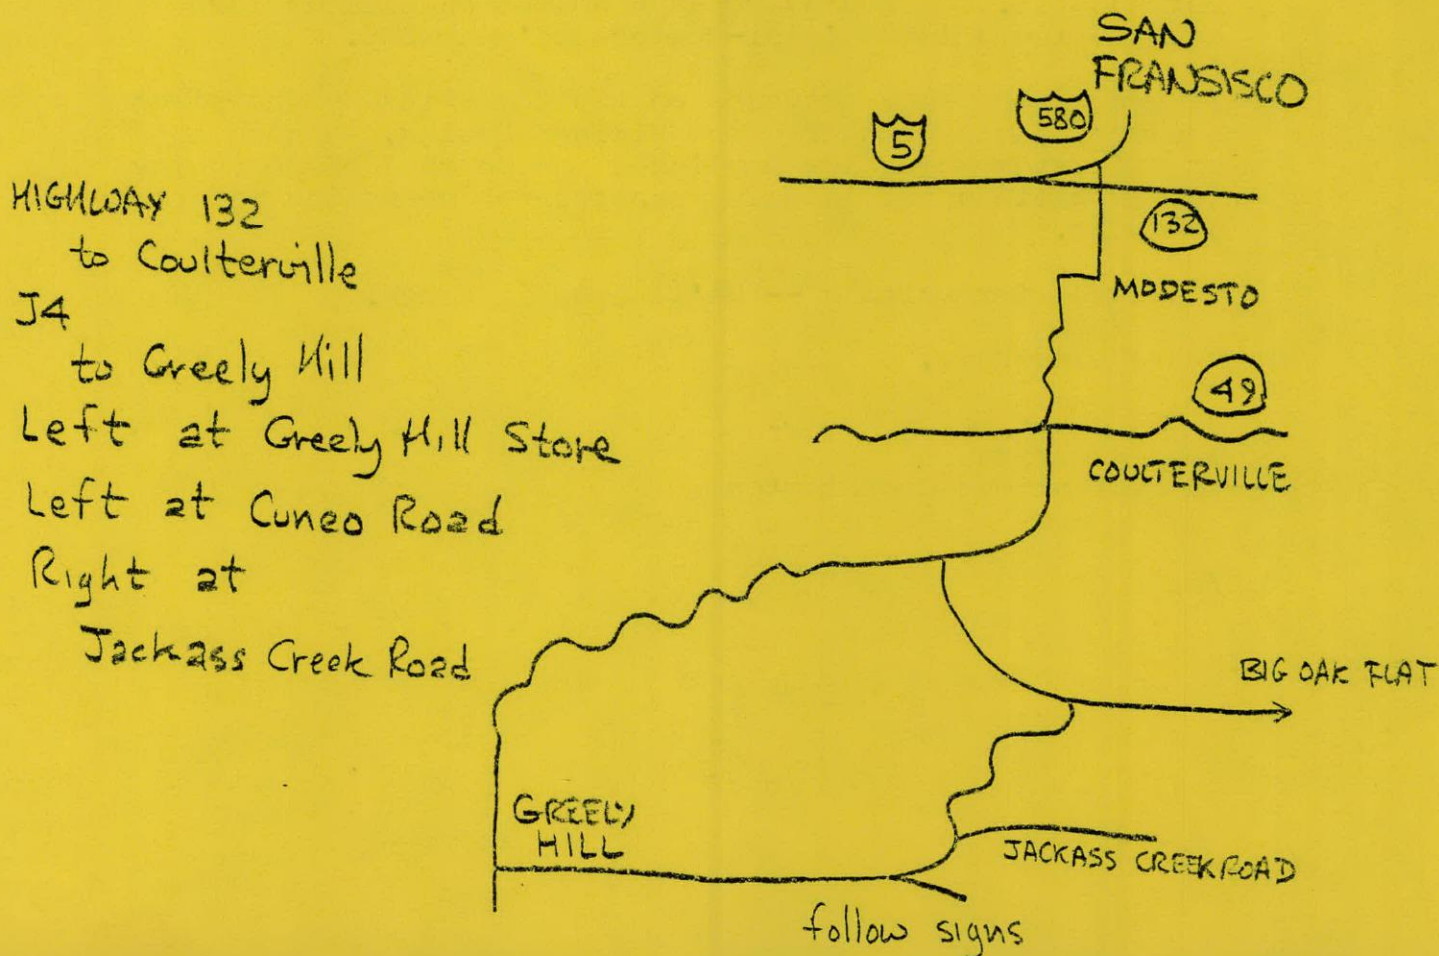 HIGHWAY 132
to Coulterville
J4
to Greely Hill
Left at Greely Hill Store
Left at Cuneo Road
Right at
Jackass Creek Road
SAN
FRANSISCO
580
5
132
MODESTO
49
COULTERVILLE
BIG OAK FLAT
GREELY
HILL
JACKASS CREEK ROAD
follow signs